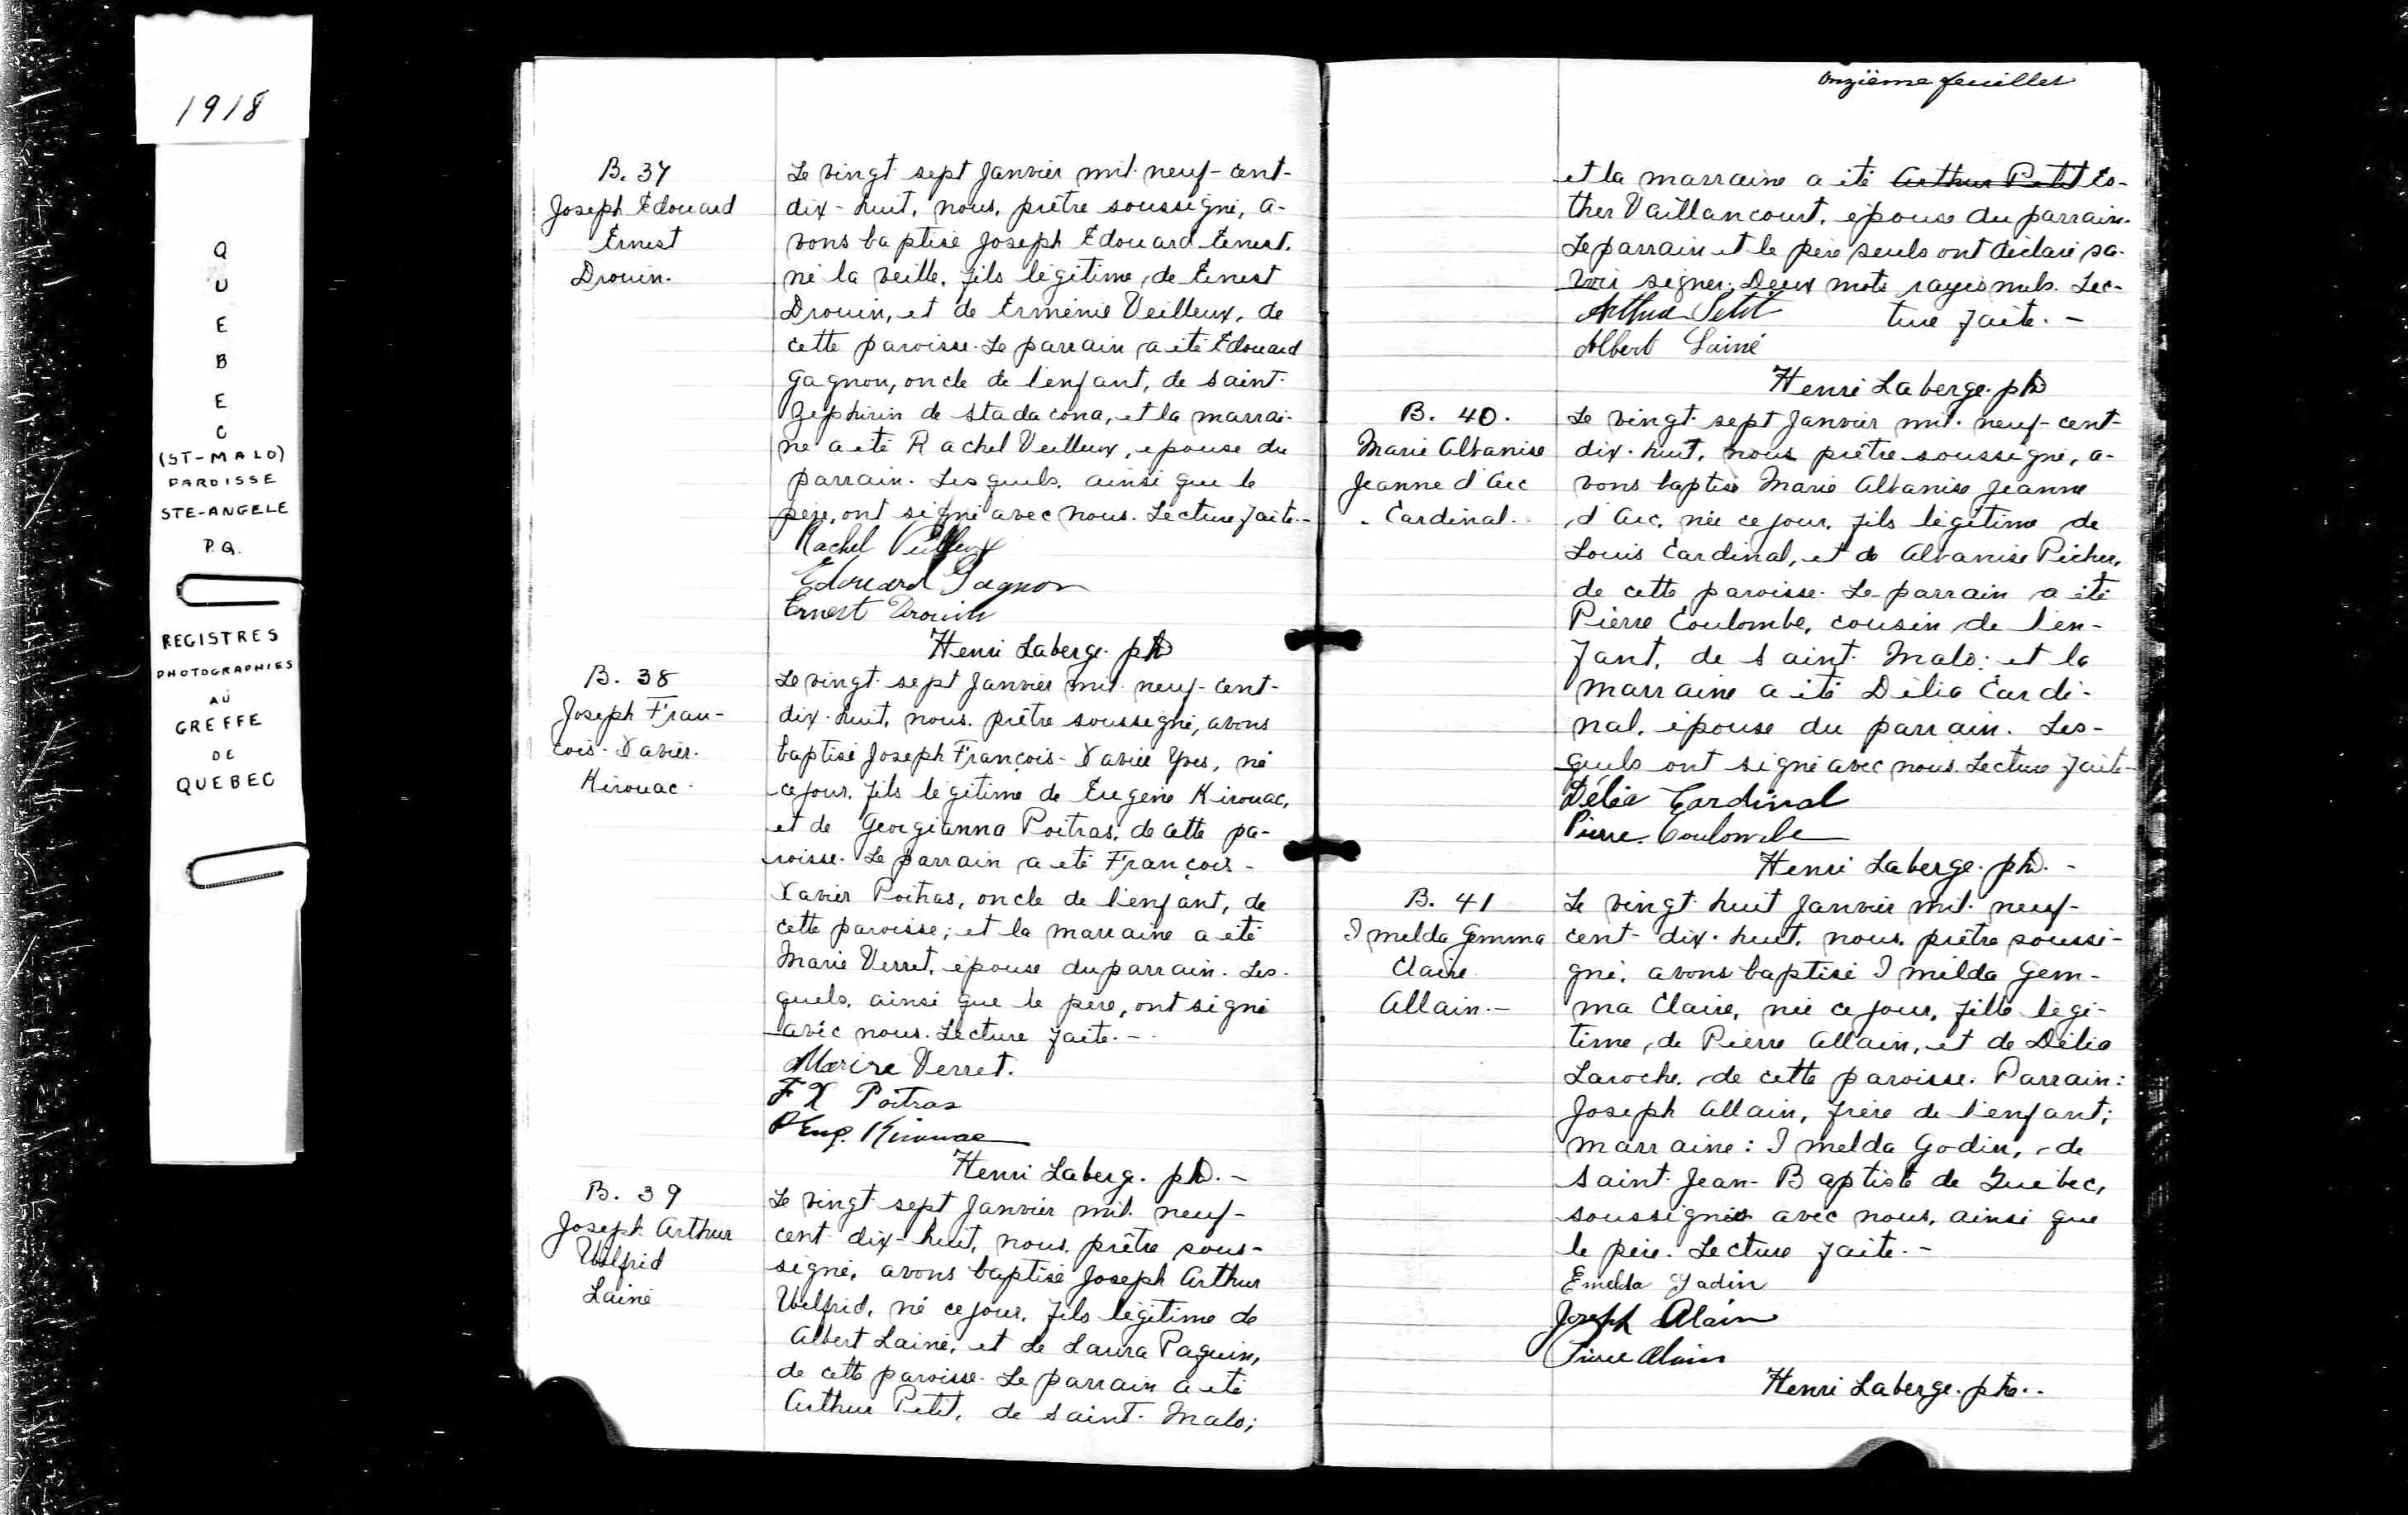 1918
Q
U
E
B
E
C
(ST-MALO)
PAROISSE
STE-ANGELE
P.Q.
REGISTRES
PHOTOGRAPHIES
AU
GREFFE
DE
QUEBEC
B. 37
Joseph Edouard
Ernest
Drouin.
Le vingt sept Janvier mil neuf-cent-
dix-huit, nous, prêtre soussigné, a-
vons baptisé Joseph Edouard Ernest,
né la veille, fils légitime de Ernest
Drouin, et de Erménie Veilleux, de
cette paroisse. Le parrain a été Edouard
Gagnon, oncle de l'enfant, de Saint-
Zéphirin de Stadacona, et la marrai-
ne a été Rachel Veilleux, épouse du
parrain. Lesquels, ainsi que le
père, ont signé avec nous. Lecture faite.-
Rachel Veilleux
Edouard Gagnon
Ernest Drouin
Henri Laberge. ptr
B. 38
Joseph Fran-
çois-Xavier.
Kirouac.
Le vingt-sept Janvier mil neuf-cent-
dix-huit, nous, prêtre soussigné, avons
baptisé Joseph François-Xavier Yves, né
ce jour, fils légitime de Eugène Kirouac,
et de Georgianna Poitras, de cette pa-
roisse. Le parrain a été François-
Xavier Poitras, oncle de l'enfant, de
cette paroisse; et la marraine a été
Marie Verret, épouse du parrain. Les-
quels, ainsi que le père, ont signé
avec nous. Lecture faite.-
Verret.
F X Poitras
Eug. Kirouac
Henri Laberge. ptr.-
B. 39
Joseph Arthur
Wilfrid
Lainé
Le vingt-sept Janvier mil neuf-
cent dix-huit, nous, prêtre sous-
signé, avons baptisé Joseph Arthur
Wilfrid, né ce jour, fils légitime de
Albert Lainé, et de Laura Paquin,
de cette paroisse. Le parrain a été
Arthur Petit, de Saint-Malo;
onzième feuillet
et la marraine a été Arthur Petit Es-
ther Vaillancourt, épouse du parrain.
Le parrain et le père seuls ont déclaré sa-
voir signer. Deux mots rayés nuls. Lec-
Arthur Petit ture faite.-
Albert Lainé
Henri Laberge. ptr
B. 40.
Marie Albanise
Jeanne d'Arc
Cardinal.
Le vingt-sept Janvier mil neuf-cent-
dix-huit, nous prêtre soussigné, a-
vons baptisé Marie Albanise Jeanne
d'Arc, née ce jour, fils légitime de
Louis Cardinal, et de Albanise Picher,
de cette paroisse. Le parrain a été
Pierre Coulombe, cousin de l'en-
fant, de Saint-Malo; et la
marraine a été Délia Cardi-
nal, épouse du parrain. Les-
quels ont signé avec nous. Lecture faite-
Délia Cardinal
Pierre Coulombe
Henri Laberge. ptr.-
B. 41
Imelda Gemma
Claire
Allain.-
Le vingt-huit Janvier mil neuf-
cent-dix-huit, nous, prêtre soussi-
gné, avons baptisé Imelda Gem-
ma Claire, née ce jour, fille légi-
time, de Pierre Allain, et de Délia
Laroche, de cette paroisse. Parrain:
Joseph Allain, frère de l'enfant;
marraine: Imelda Godin, de
Saint-Jean-Baptiste de Québec,
soussignés avec nous, ainsi que
le père. Lecture faite.-
Emelda Gadin
Joseph Alain
Pierre Alain
Henri Laberge. ptr..